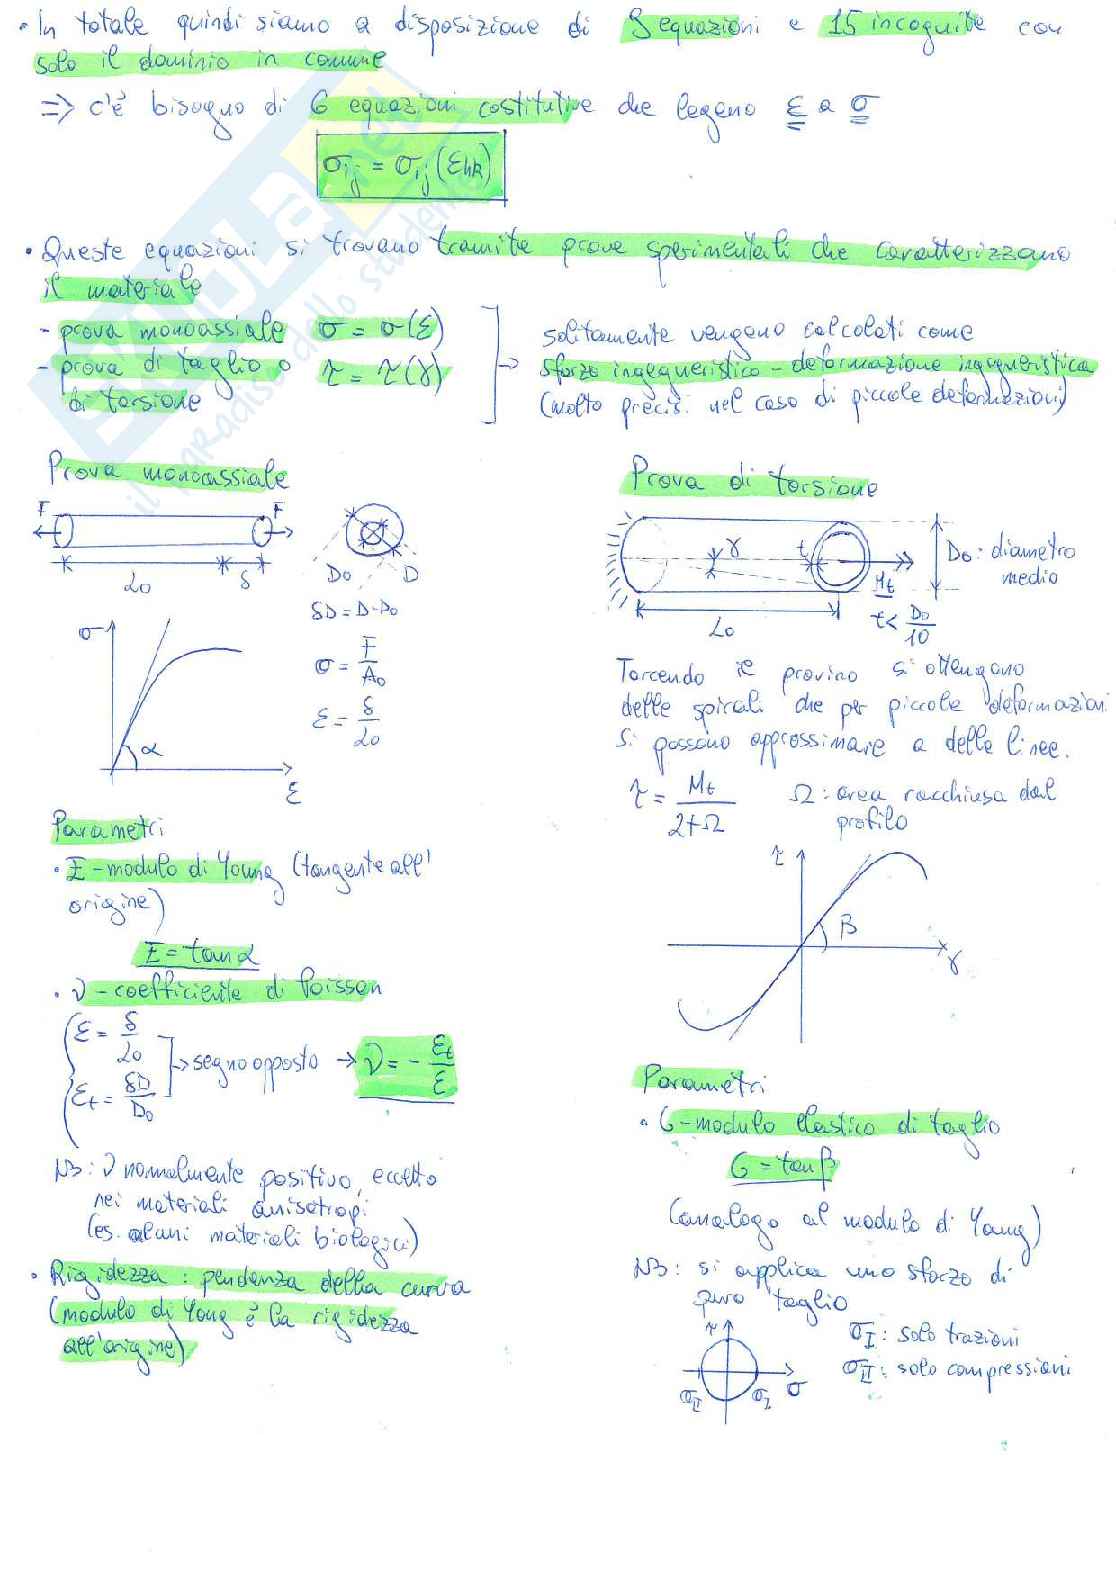 • In totale quindi siamo a disposizione di 9 equazioni e 15 incognite con
solo il dominio in comune
=> c'è bisogno di 6 equazioni costitutive che legano ε a σ
σij = σij (εhk)
• Queste equazioni si trovano tramite prove sperimentali che caratterizzano
il materiale
- prova monoassiale σ = σ(ε)
- prova di taglio o τ = τ(γ)
di torsione
→ solitamente vengono calcolati come
sforzo ingegneristico - deformazione ingegneristica
(molto precisi nel caso di piccole deformazioni)
Prova monoassiale
F F
L0 δ
D0 D
δD = D-D0
σ
α
ε
σ = F/A0
ε = δ/L0
Parametri
• E - modulo di Young (tangente all'
origine)
E = tanα
• ν - coefficiente di Poisson
ε = δ/L0
εt = δD/D0
→ segno opposto → ν = - εt/ε
NB: ν normalmente positivo, eccetto
nei materiali anisotropi
(es. alcuni materiali biologici)
• Rigidezza: pendenza della curva
(modulo di Yong è la rigidezza
all'origine)
Prova di torsione
γ t
Mt
D0: diametro
medio
L0
t < D0/10
Torcendo il provino si ottengono
delle spirali che per piccole deformazioni
si possono approssimare a delle linee.
τ = Mt/2tΩ Ω: area racchiusa dal
profilo
τ
β
γ
Parametri
• G - modulo elastico di taglio
G = tanβ
(analogo al modulo di Yong)
NB: si applica uno sforzo di
puro taglio
τ
σII σI σ
σI: solo trazioni
σII: solo compressioni
SKUOLA.net
il paradiso dello studente